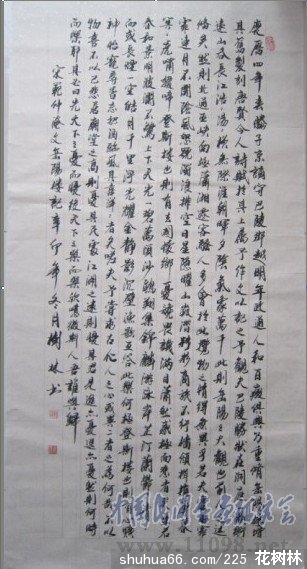 慶曆四年春滕子京謫守巴陵郡越明年政通人和百廢俱興乃重脩岳陽樓增
其舊製刻唐賢今人詩賦於其上屬予作文以記之予觀夫巴陵勝狀在洞庭一湖銜
遠山吞長江浩浩湯湯橫無際涯朝暉夕陰氣象萬千此則岳陽樓之大觀也前人之述
備矣然則北通巫峽南極瀟湘遷客騷人多會於此覽物之情得無異乎若夫霪雨霏
霏連月不開陰風怒號濁浪排空日星隱曜山岳潛形商旅不行檣傾楫摧薄暮冥
冥虎嘯猿啼登斯樓也則有去國懷鄉憂讒畏譏滿目蕭然感極而悲者矣至若
春和景明波瀾不驚上下天光一碧萬頃沙鷗翔集錦鱗游泳岸芷汀蘭鬱鬱青青
而或長煙一空皓月千里浮光耀金靜影沉璧漁歌互答此樂何極登斯樓也則有心曠
神怡寵辱皆忘把酒臨風其喜洋洋者矣嗟夫予嘗求古仁人之心或異二者之為何哉不以
物喜不以己悲居廟堂之高則憂其民處江湖之遠則憂其君是進亦憂退亦憂然則何時
而樂耶其必曰先天下之憂而憂後天下之樂而樂歟噫微斯人吾誰與歸
宋范仲淹文岳陽樓記辛卯年冬月樹林書
shuhua66.com/225 花树林